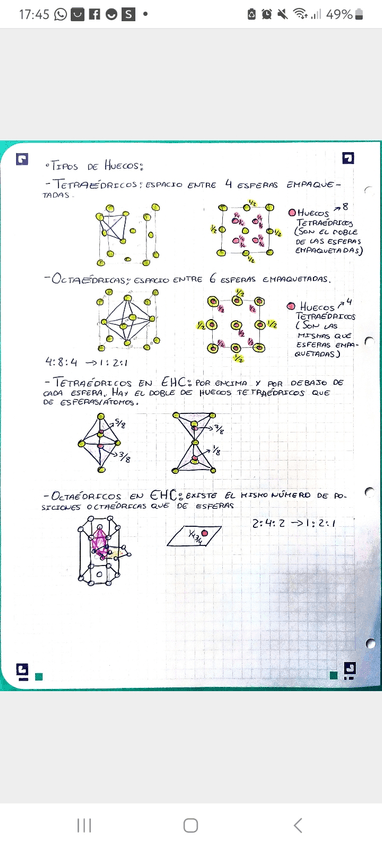 17:45
49%
• TIPOS DE HUECOS:
- TETRAÉDRICOS: ESPACIO ENTRE 4 ESFERAS EMPAQUE-
TADAS.
1/2
1/2
1/2
1/2
HUECOS → 8
TETRAÉDRICOS
(SON EL DOBLE
DE LAS ESFERAS
EMPAQUETADAS)
- OCTAÉDRICAS: ESPACIO ENTRE 6 ESFERAS EMPAQUETADAS.
1/2
1/2
1/2
1/2
HUECOS → 4
TETRAÉDRICOS
(SON LAS
MISMAS QUE
ESFERAS EMPA-
QUETADAS)
4:8:4 → 1:2:1
- TETRAÉDRICOS EN EHC: POR ENCIMA Y POR DEBAJO DE
CADA ESFERA. HAY EL DOBLE DE HUECOS TETRAÉDRICOS QUE
DE ESFERAS/ÁTOMOS.
5/8
3/8
1/8
- OCTAÉDRICOS EN EHC: EXISTE EL MISMO NÚMERO DE PO-
SICIONES OCTAÉDRICAS QUE DE ESFERAS
2:4:2 → 1:2:1